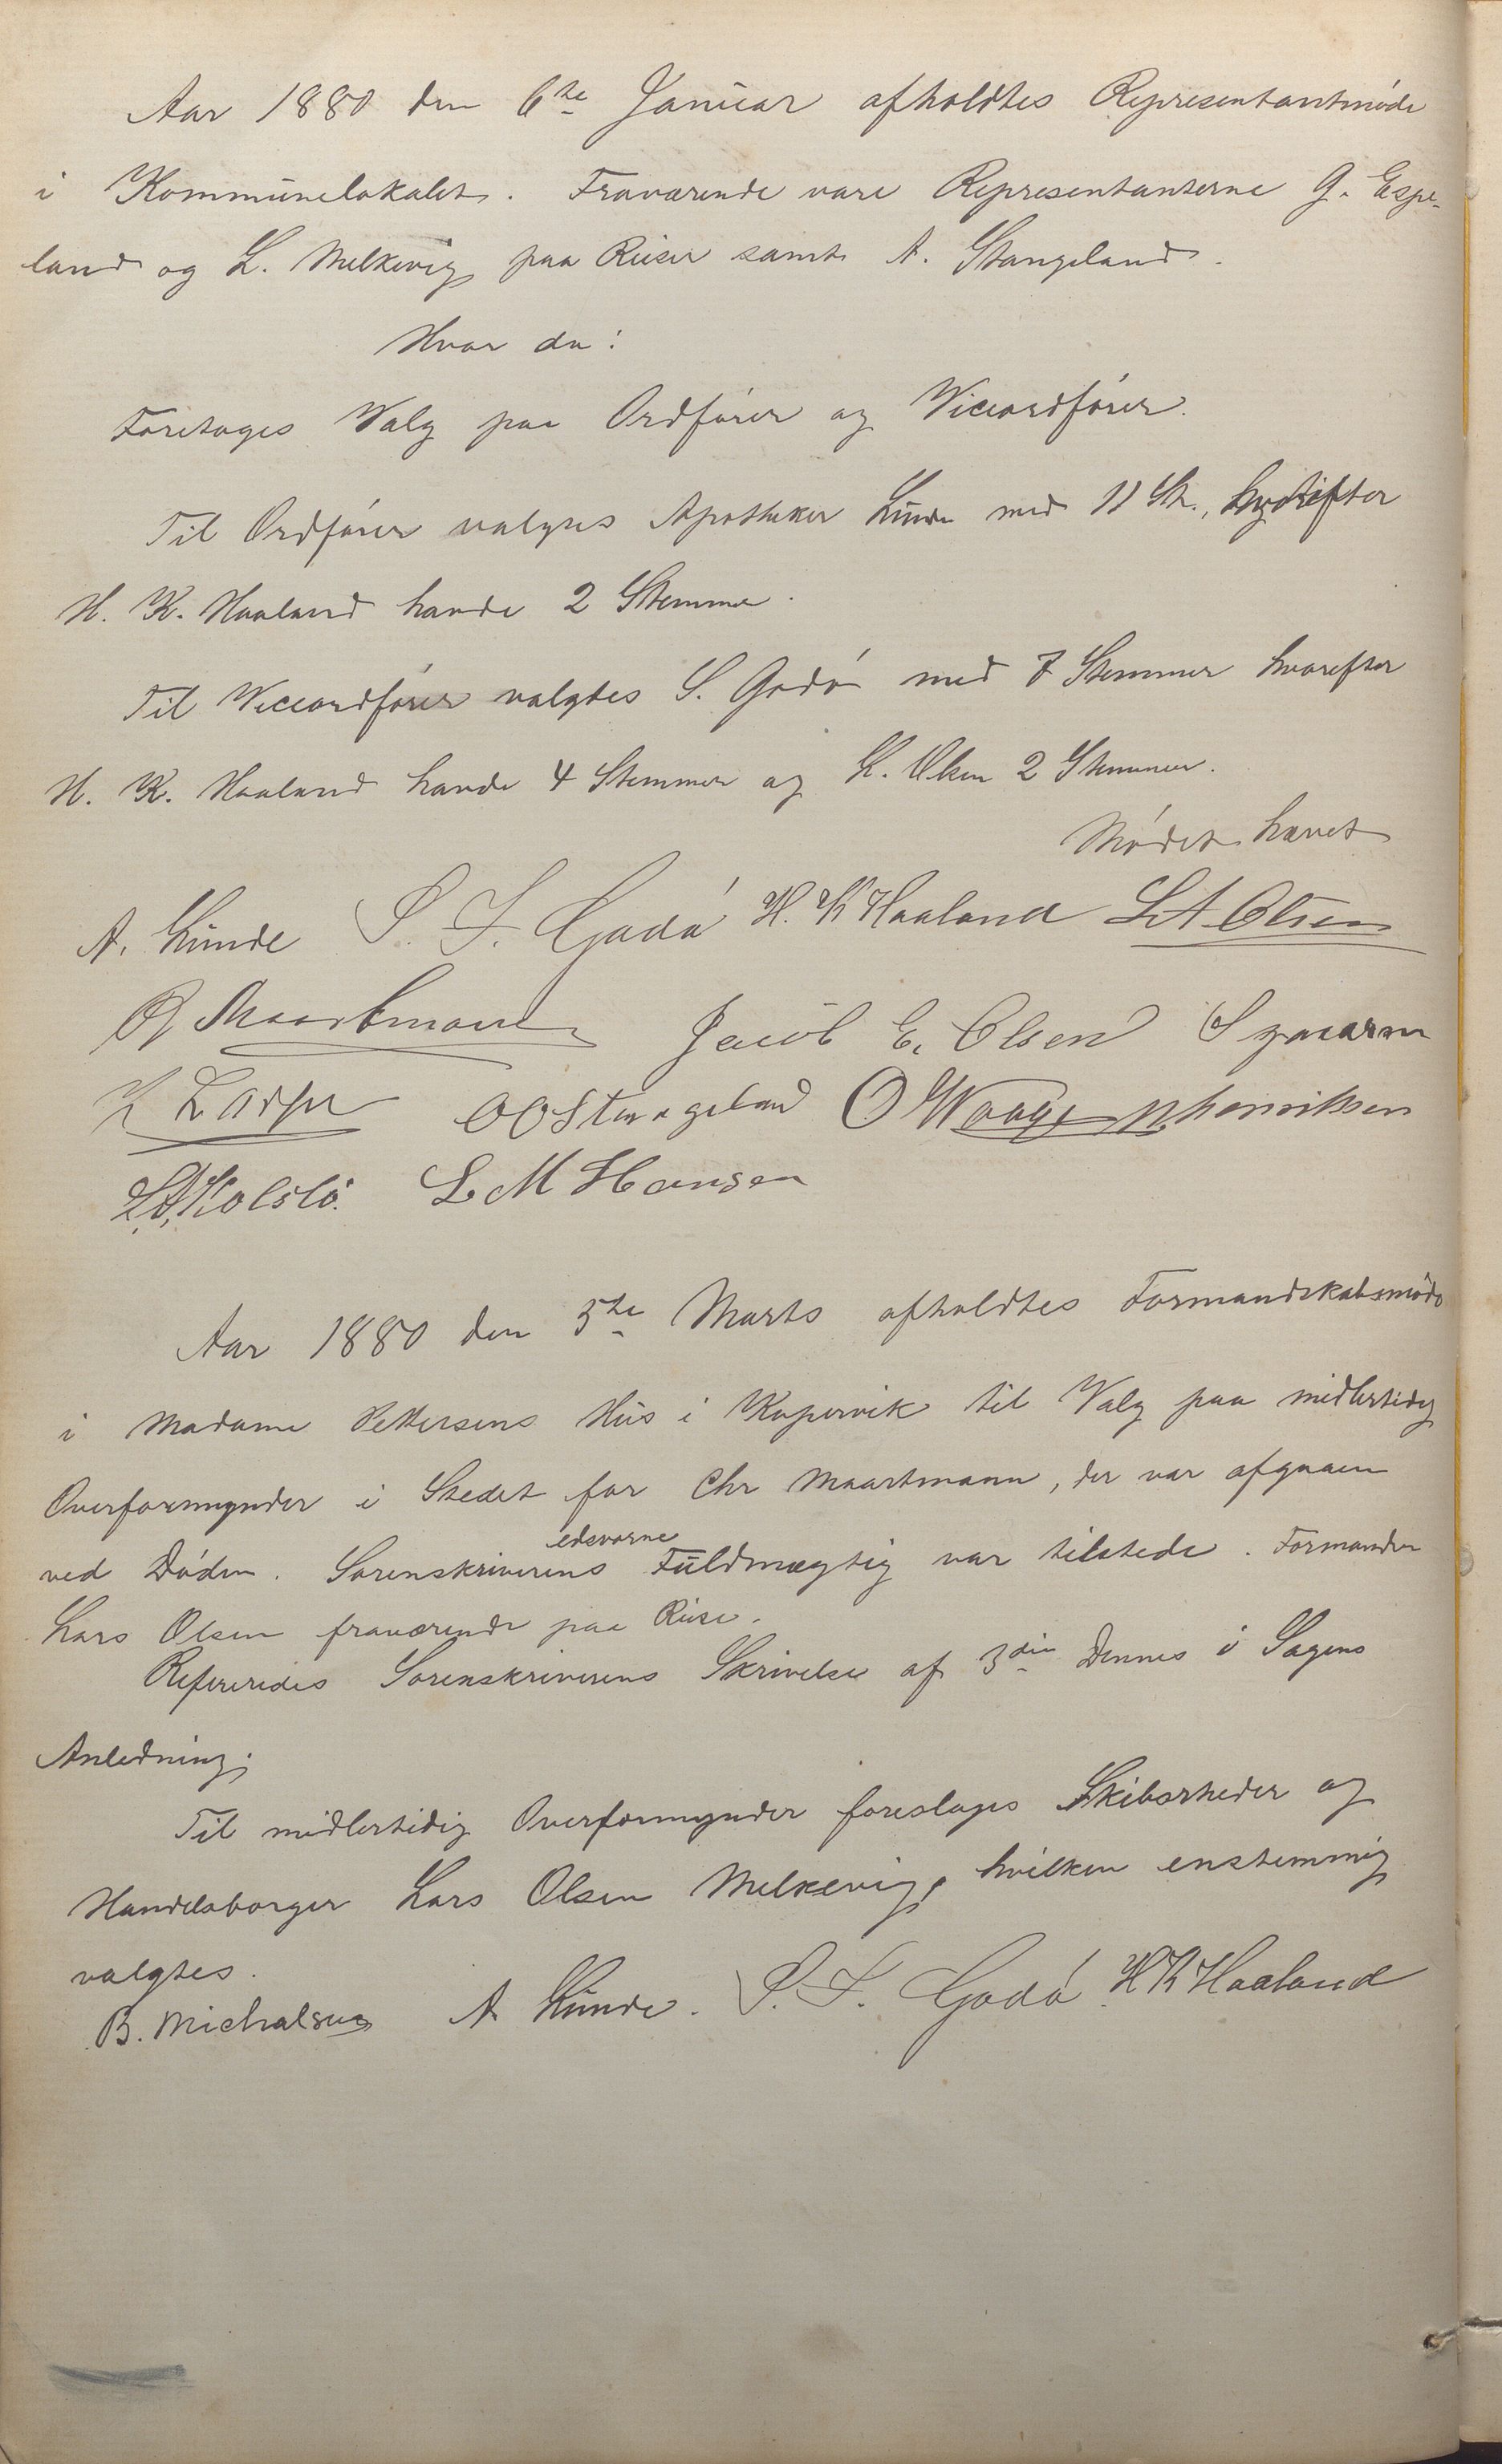 Aar 1880 den 6te Januar afholdtes Representantmøde
i Kommunelokalet. Fraværende vare Representanterne G. Espe-
land og L. Melkevig paa Reiser samt A. Stangeland.
Hvor da:
Foretoges Valg paa Ordfører og Viceordfører.
Til Ordfører valgtes Apotheker Lünde med 11 St.,
H. K. Haaland havde 2 Stemmer.
Til Viceordfører valgtes S. Godø med 7 Stemmer hvorefter
H. K. Haaland havde 4 Stemmer og L. Olsen 2 Stemmer.
Mødet hævet
A. Lünde S. S. Godø H. K Haaland L A Olsen
Maartmann Jacob E. Olsen S
K Larsen O O Stangeland O Waage N henriksen
L. A. Kolstø. L M Hansen
Aar 1880 den 5te Marts afholdtes Formandskabsmøde
i Madame Pettersens Hus i Kopervik til Valg paa midlertidig
Overformynder i Stedet for Chr Maartmann, der var afgaaen
ved Døden. Sorenskriverens edsvorne Fuldmægtig var tilstede. Formanden
Lars Olsen fraværende paa Reise.
Refereredes Sorenskriverens Skrivelse af 3die Dennes i Sagens
Anledning.
Til midlertidig Overformynder foresloges Skibsrheder og
Handelsborger Lars Olsen Melkevig, hvilken enstemmig
valgtes.
B. Michalsen A. Lünde. S. S. Godø H K Haaland